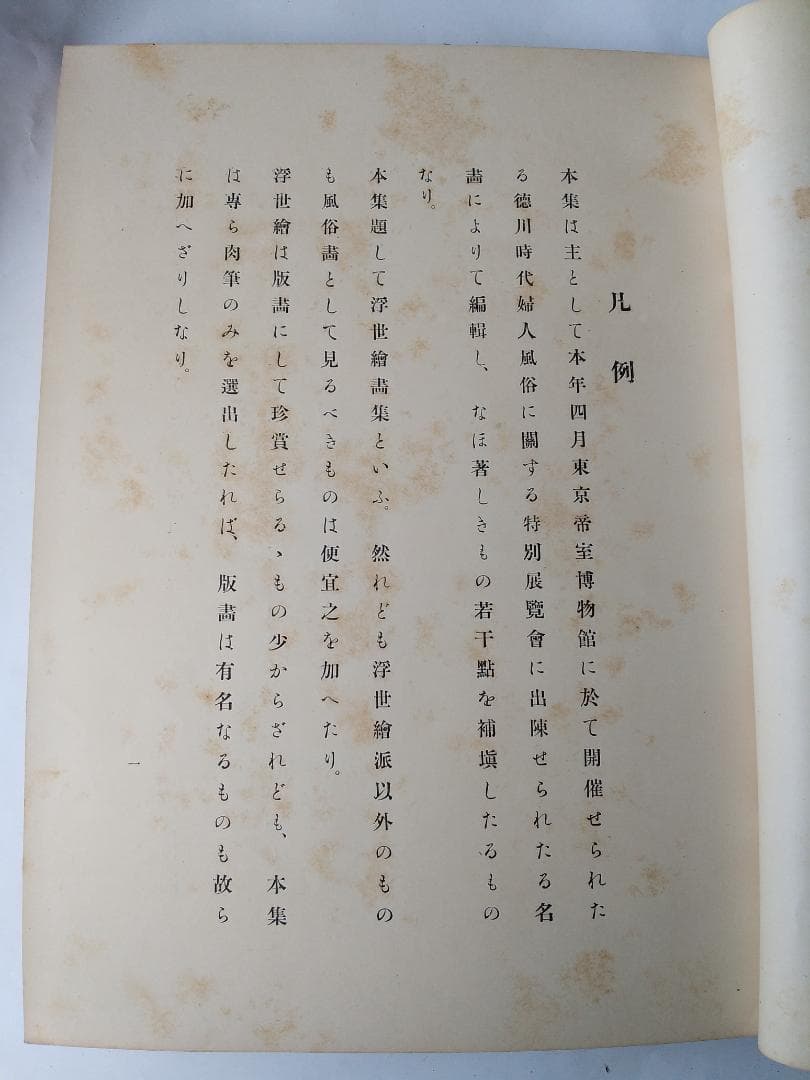 凡例
本集は主として本年四月東京帝室博物館に於て開催せられた
る德川時代婦人風俗に關する特別展覽會に出陳せられたる名
畵によりて編輯し、なほ著しきもの若干點を補塡したるもの
なり。
本集題して浮世繪畵集といふ。然れども浮世繪派以外のもの
も風俗畵として見るべきものは便宜之を加へたり。
浮世繪は版畵にして珍賞せらるゝもの少からざれども、本集
は專ら肉筆のみを選出したれば、版畵は有名なるものも故ら
に加へざりしなり。
一